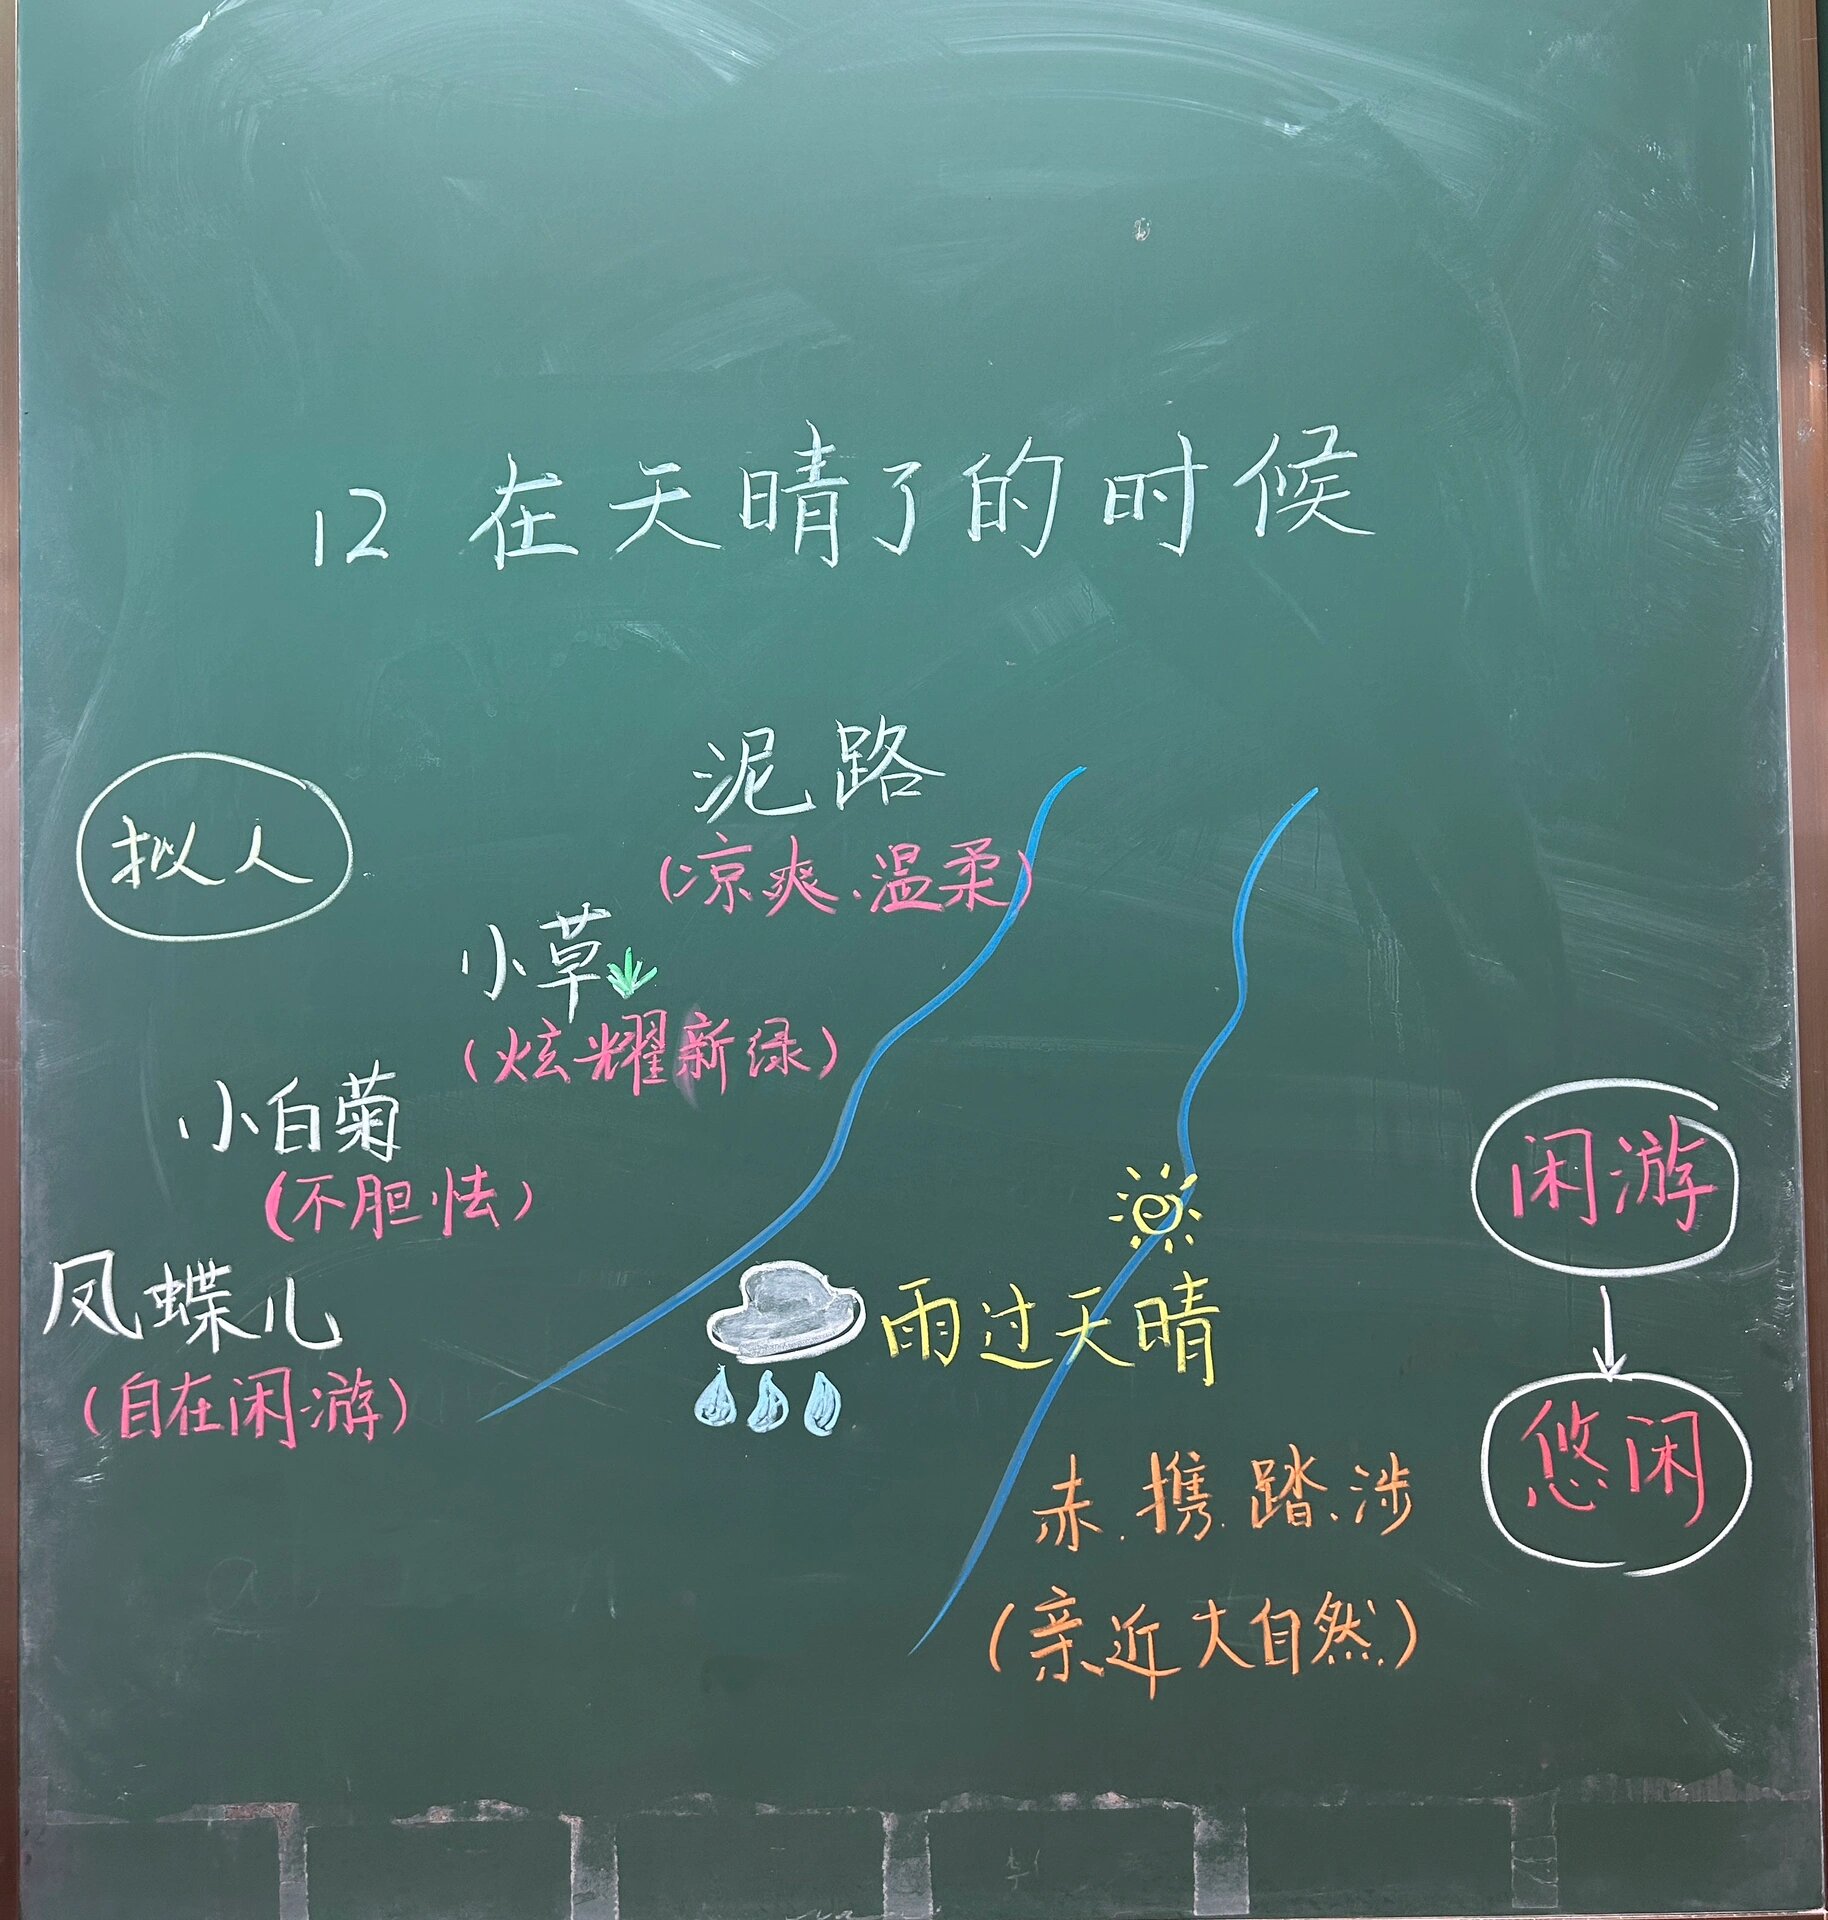 12 在天晴了的时候
拟人
泥路
(凉爽、温柔)
小草
(炫耀新绿)
小白菊
(不胆怯)
凤蝶儿
(自在闲游)
雨过天晴
赤、携、踏、涉
(亲近大自然)
闲游
悠闲